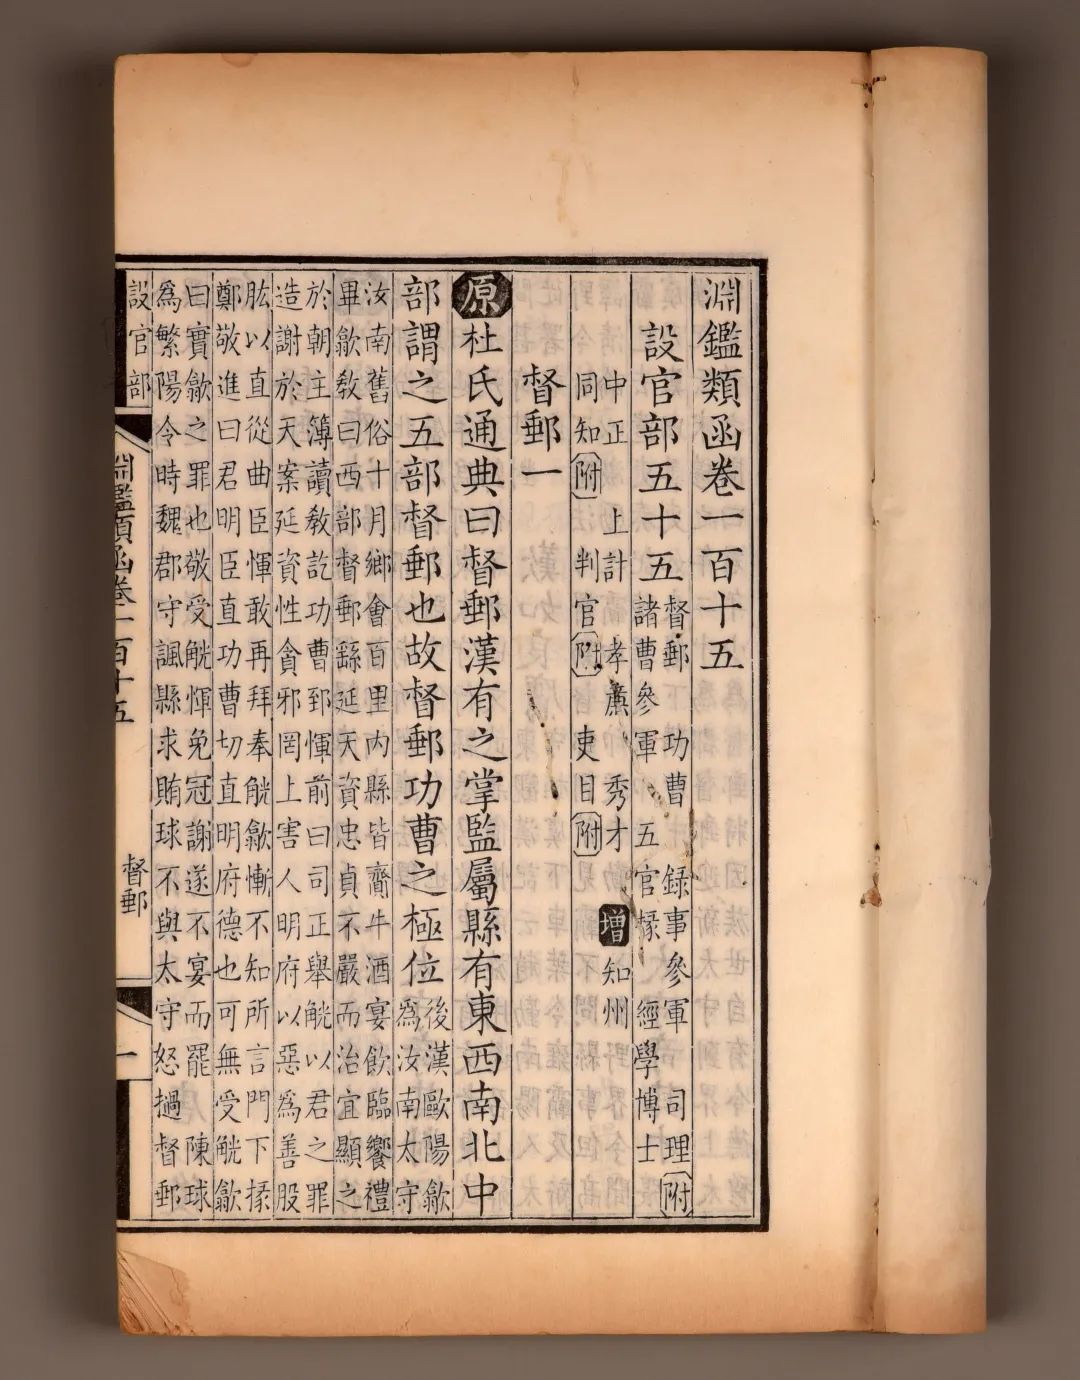 淵鑑類函卷一百十五
設官部五十五
督郵 功曹 録事參軍 司理附
諸曹參軍 五官掾 經學博士
中正 上計 孝廉 秀才 增 知州
同知附 判官附 吏目附
督郵一
原杜氏通典曰督郵漢有之掌監屬縣有東西南北中
部謂之五部督郵也故督郵功曹之極位
後漢歐陽歙
為汝南太守
汝南舊俗十月鄉會百里內縣皆齎牛酒宴飲臨饗禮
畢歙敎曰西部督郵繇延天資忠貞不嚴而治宜顯之
於朝主簿讀敎訖功曹郅惲前曰司正舉觥以君之罪
造謝於天案延資性貪邪罔上害人明府以惡為善股
肱以直從曲臣惲敢再拜奉觥歙慚不知所言門下掾
鄭敬進曰君明臣直功曹切直明府德也可無受觥歙
曰實歙之罪也敬受觥惲免冠謝遂不宴而罷 陳球
為繁陽令時魏郡守諷縣求賄球不與太守怒撾督郵
設官部
淵鑑類函卷一百十五
督郵
一